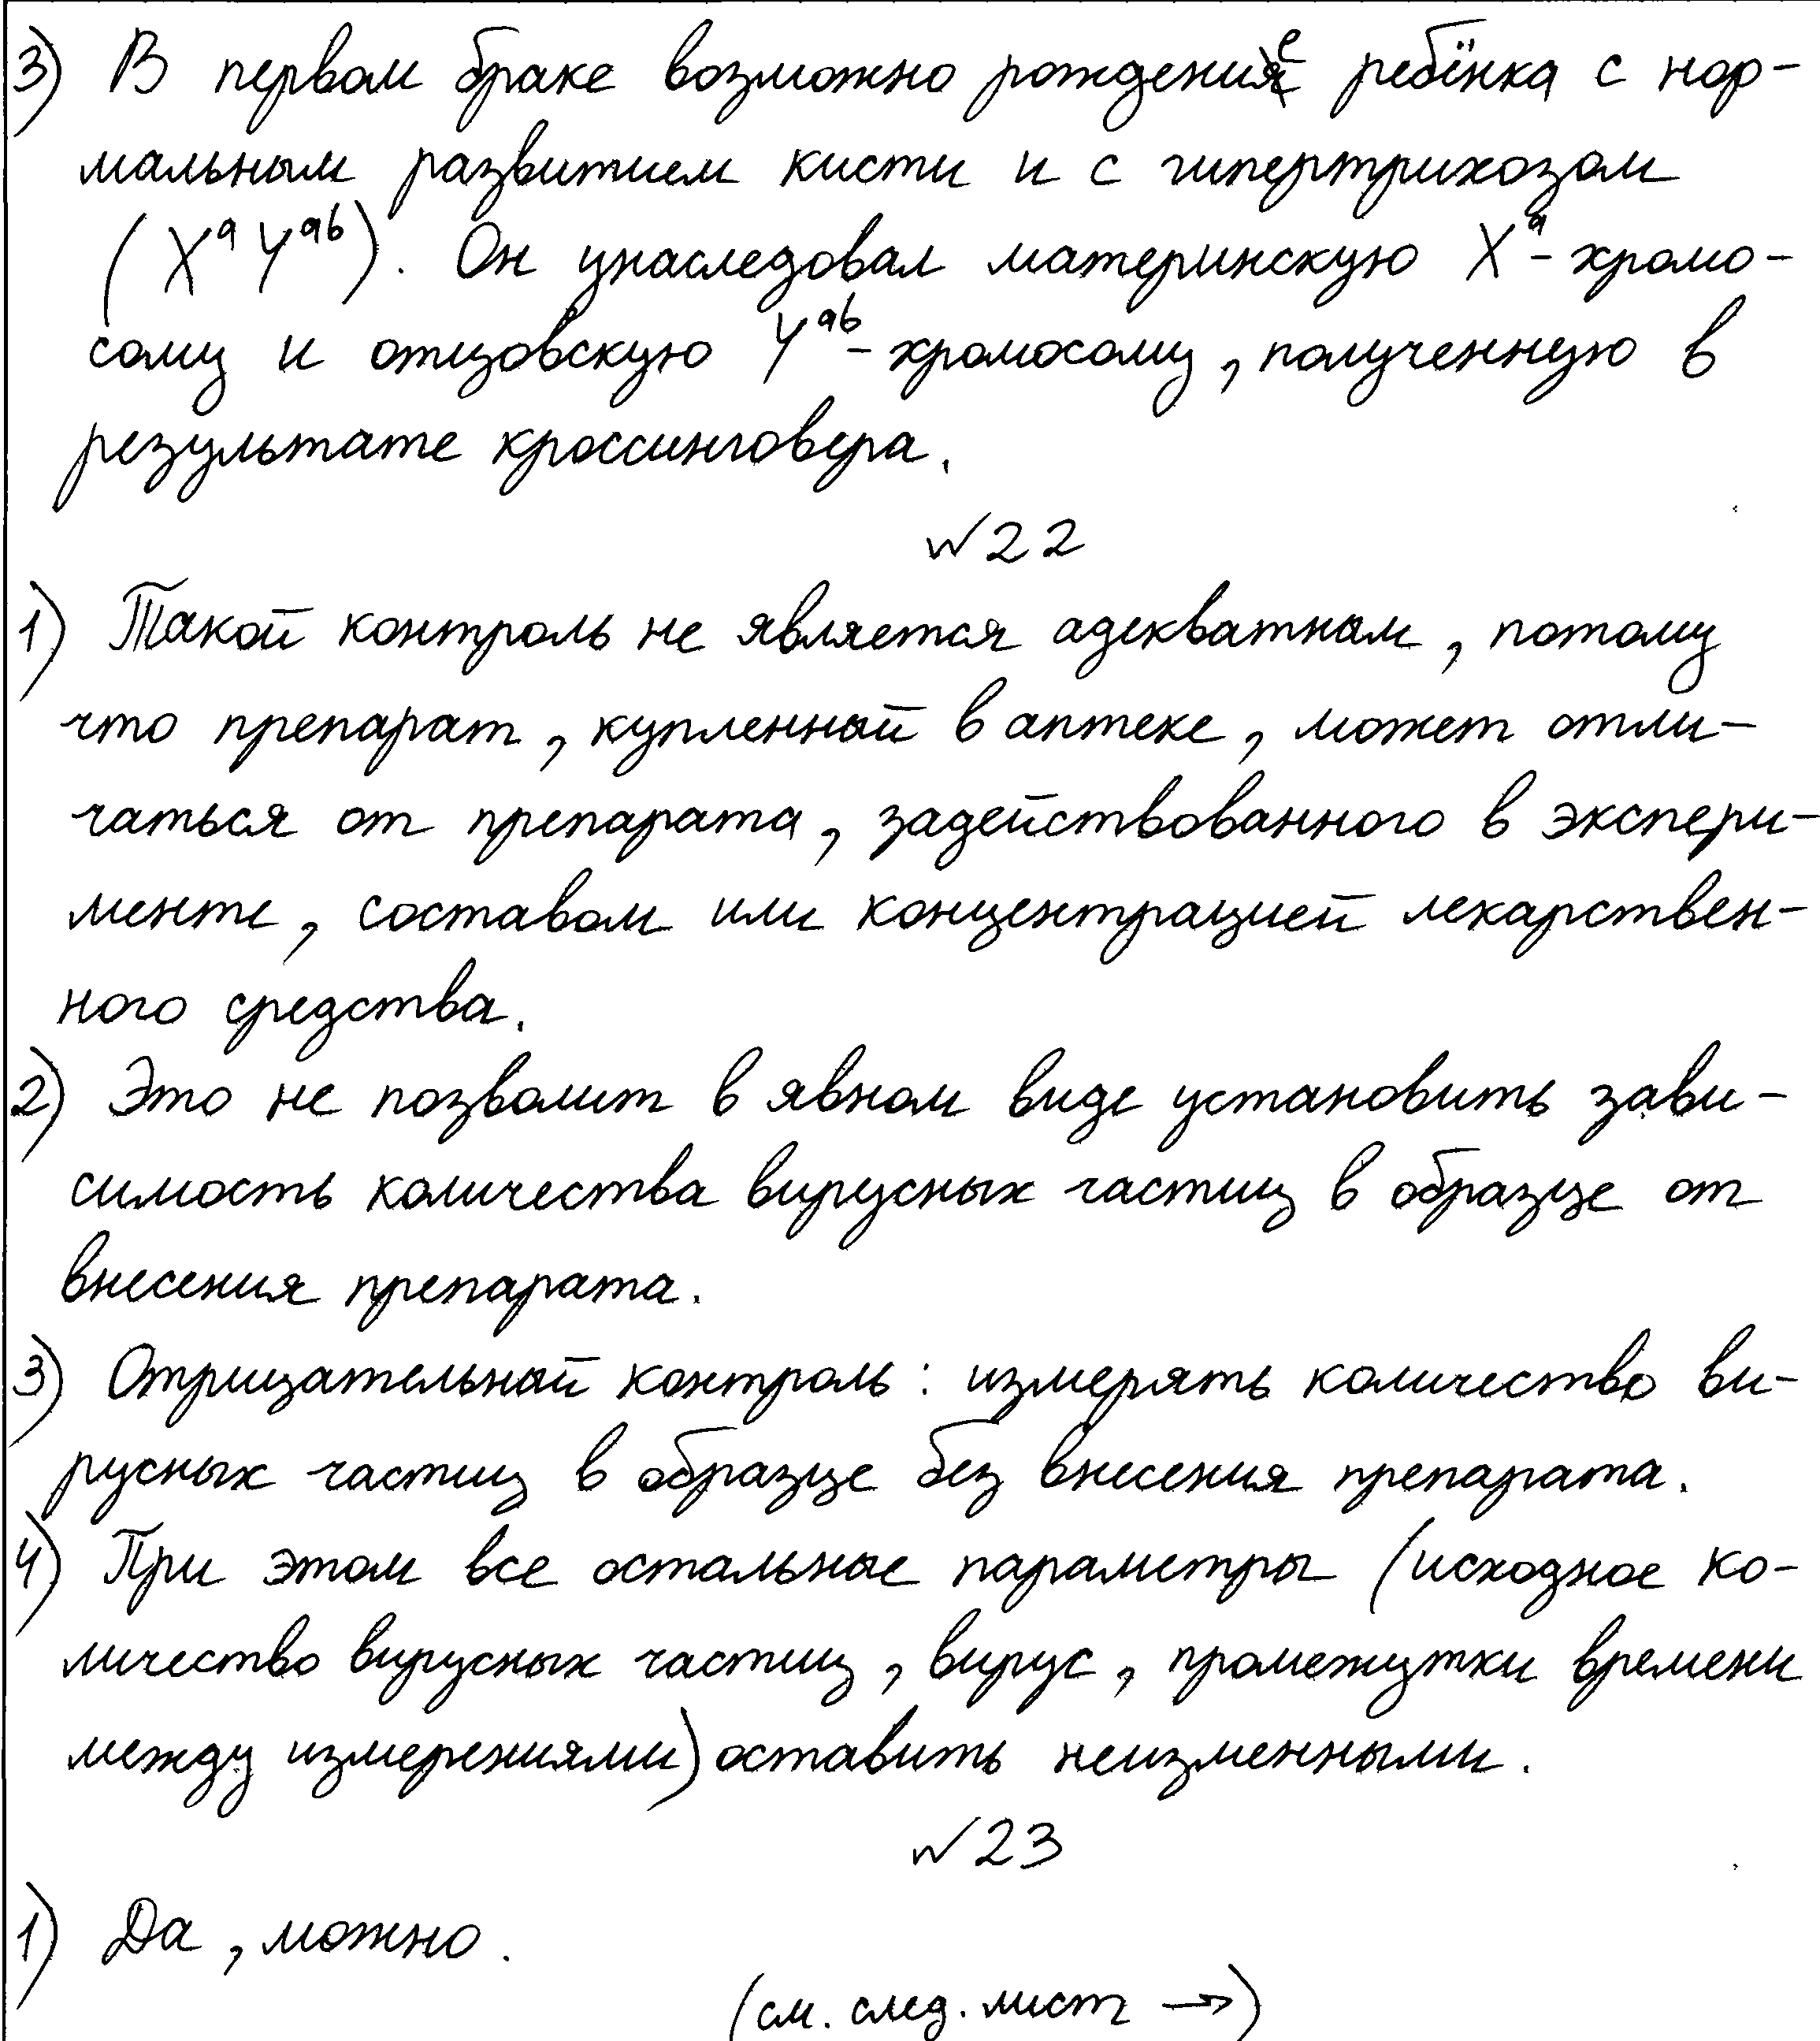 3) В первом браке возможно рождение ребёнка с нор-
мальным развитием кисти и с гипертрихозом
(XᵃYᵃᵇ). Он унаследовал материнскую Xᵃ-хромо-
сому и отцовскую Yᵃᵇ-хромосому, полученную в
результате кроссинговера.
№22
1) Такой контроль не является адекватным, потому
что препарат, купленный в аптеке, может отли-
чаться от препарата, задействованного в экспери-
менте, составом или концентрацией лекарствен-
ного средства.
2) Это не позволит в явном виде установить зави-
симость количества вирусных частиц в образце от
внесения препарата.
3) Отрицательный контроль: измерять количество ви-
русных частиц в образце без внесения препарата.
4) При этом все остальные параметры (исходное ко-
личество вирусных частиц, вирус, промежутки времени
между измерениями) оставить неизменными.
№23
1) Да, можно.
(см. след. лист →)